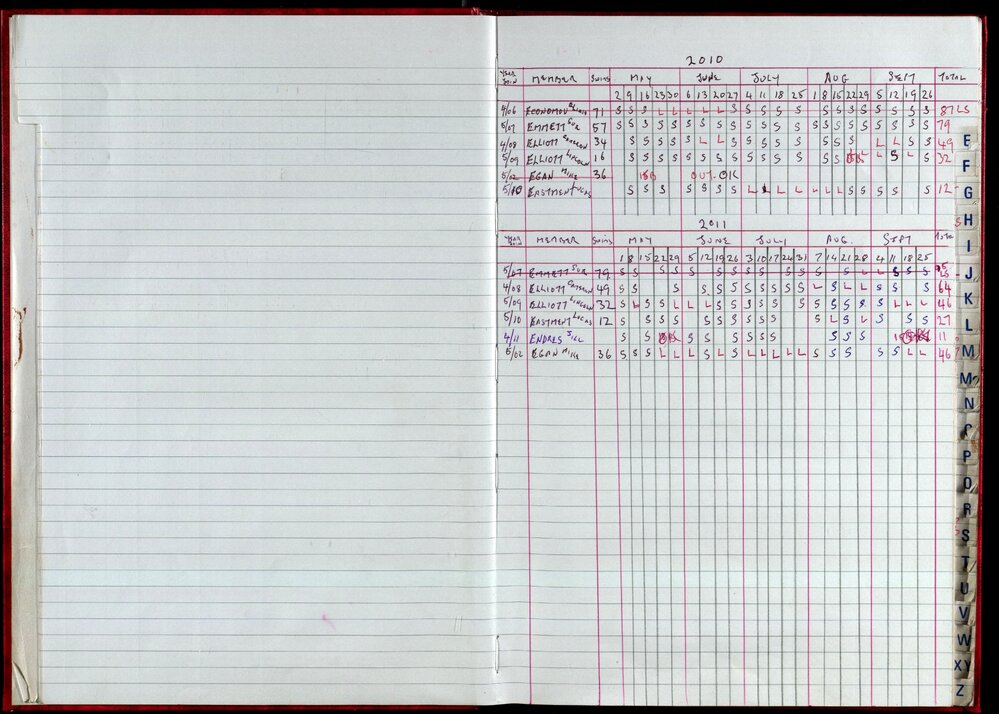 2010
YEAR JOIN MEMBER SWIMS MAY JUNE JULY AUG SEPT TOTAL
2 9 16 23 30 6 13 20 27 4 11 18 25 1 8 15 22 29 5 12 19 26
4/06 ECONOMOU 71 S S S L L L L L S S S S S S S S S S S S S S 87 LS
5/07 EMMETT SUE 57 S S S S S S S S S S S S S S S S S S S S S S 79
4/08 ELLIOTT CAMERON 34 S S S S S L L S S S S S S S L L S S 49
5/09 ELLIOTT LINCOLN 16 S S S S S S S S S S S S S S L S L S 32
5/02 EGAN MIKE 36 OUT OK
5/10 EASTMENT LUCAS S S S S S S S L L L L L L L S S S S S 12
2011
YEAR JOIN MEMBER SWIMS MAY JUNE JULY AUG. SEPT TOTAL
1 8 15 22 29 5 12 19 26 3 10 17 24 31 7 14 21 28 4 11 18 25
5/07 EMMETT SUE 79
4/08 ELLIOTT CAMERON 49 S S S S S S S S S S S L S L L S S S 64
5/09 ELLIOTT LINCOLN 32 S L S S L L L S S S S S S S S S S L L L 46
5/10 EASTMENT LUCAS 12 S S S S S S S S S S S L S L S S S 27
4/11 ENDRES JILL S S S S S S S S S S 11
5/02 EGAN MIKE 36 S S S L L L S L S L L L L L S S S S S L L 46
E
F
G
H
I
J
K
L
M
M
N
P
O
R
S
T
U
V
W
XY
Z